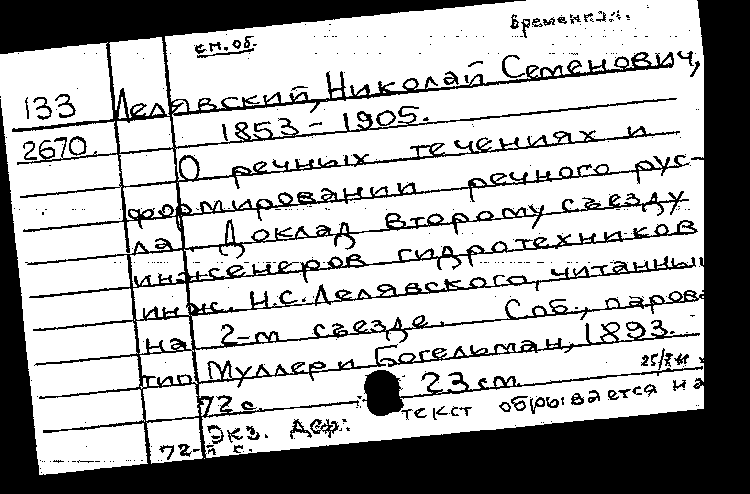 временная.
см. об.
133 Лелявский, Николай Семенович,
2670. 1853 – 1905.
О речных течениях и
формировании речного рус-
ла. Доклад второму съезду
инженеров гидротехников
инж. Н.С. Лелявского, читанны
на 2-м съезде. Спб., паров
тип Муллер и Богельман, 1893.
72 с. 23 см.
Экз. деф: текст обрывается на
72-й с.